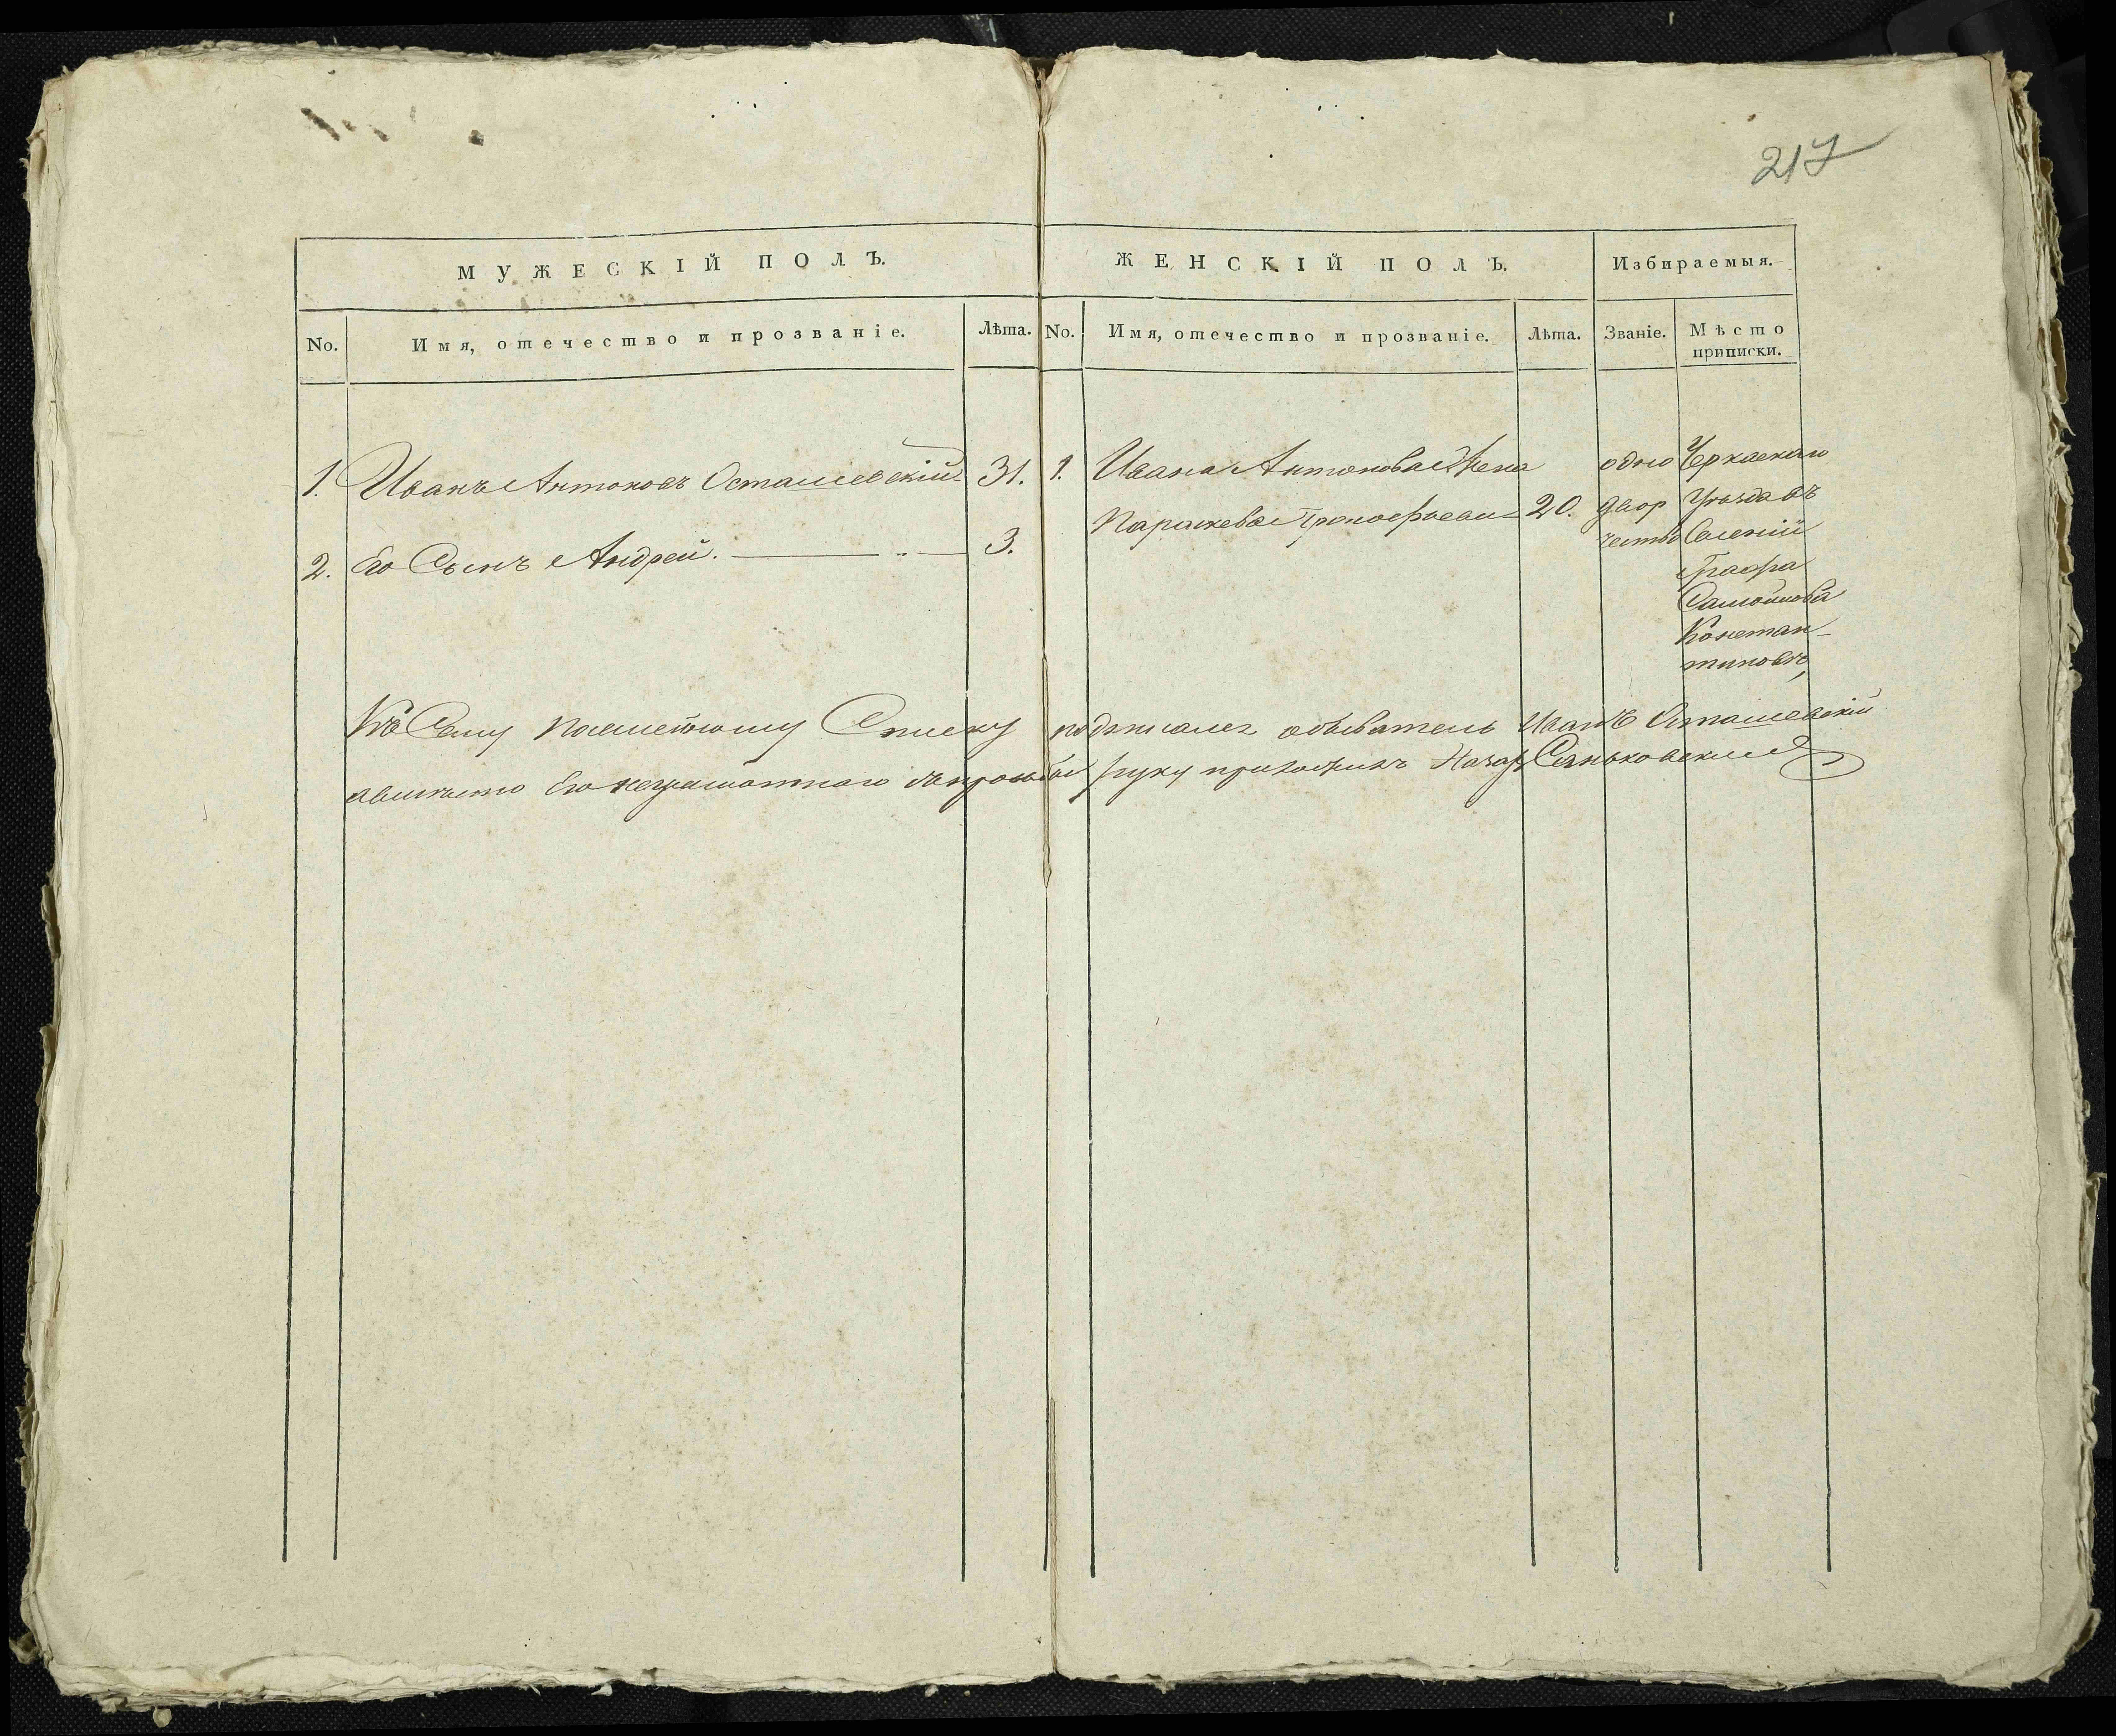 217
МУЖЕСКІЙ ПОЛЪ.
ЖЕНСКІЙ ПОЛЪ.
Избираемыя.
No.
Имя, отечество и прозваніе.
Лѣта.
No.
Имя, отечество и прозваніе.
Лѣта.
Званіе.
Мѣсто
приписки.
1. Иванъ Антоновъ Осташевскій 31.
2. Его Сынъ Андрей. 3.
1. Ивана Антонова Жена
Параскева Прокофьева 20.
одно
двор
чество
Черкаскаго
Уѣзда въ
Селеніи
Графа
Самойлова
Констан-
тиновѣ,
Къ Сему посемейному Списку подписался обыватель Иванъ Осташевскій
авмѣсто Его неграмотнаго запрозьбою руку приложилъ Назар Саньковский